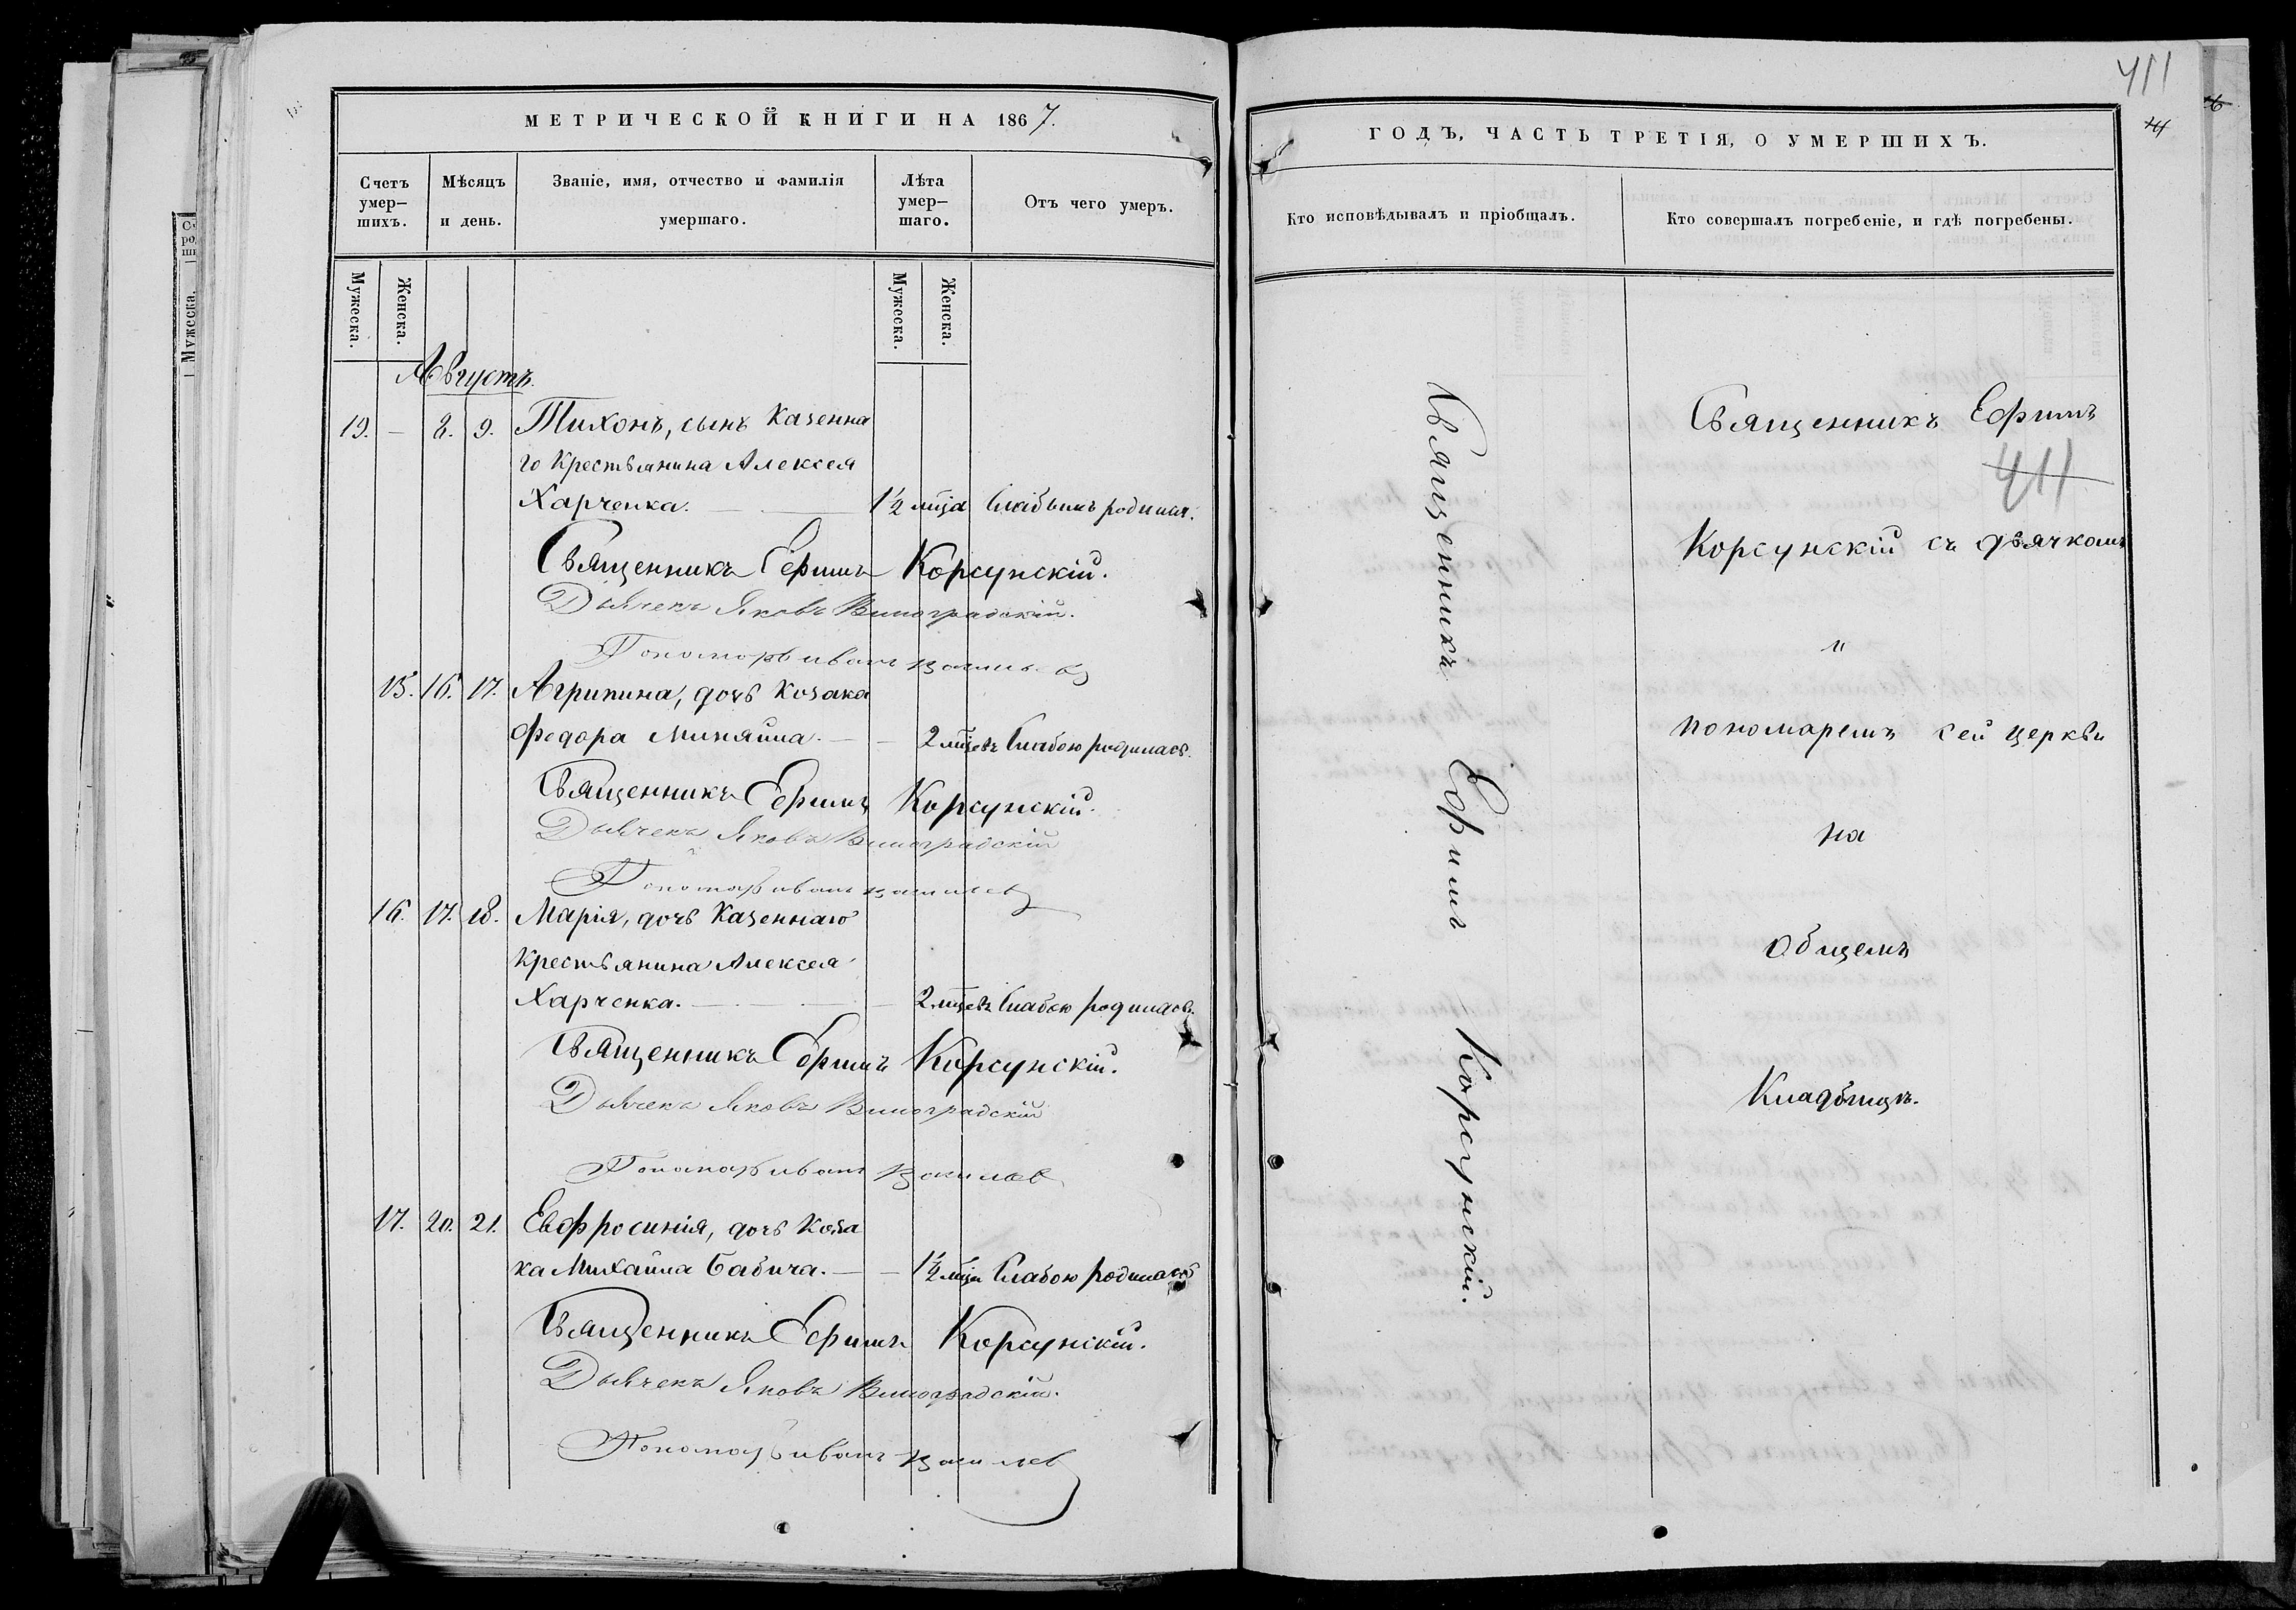 МЕТРИЧЕСКОЙ КНИГИ НА 1867.
Счетъ умер-шихъ.
Мѣсяцъ и день.
Званіе, имя, отчество и фамилія умершаго.
Лѣта умер-шаго.
Отъ чего умеръ.
Мужеска.
Женска.
Мужеска.
Женска.
Августъ.
19. — 8. 9. Тихонъ, сынъ Казенна
го Крестьянина Алексея
Харченка. — 1½ мца Слабымъ родился.
Священникъ Ефимъ Корсунскій.
Дьячекъ Яковъ Виноградскій.
Пономарь иванъ
15. 16. 17. Агрипина, дочь Козака
Федора Миняйла. — — 2 мцевъ Слабою родилась.
Священникъ Ефимъ Корсунскій.
Дьячекъ Яковъ Виноградскій
Пономарь иванъ
16. 17. 18. Марія, дочь Казеннаго
Крестьянина Алексея
Харченка. — — 2 мцевъ Слабою родилась.
Священникъ Ефимъ Корсунскій.
Дьячекъ Яковъ Виноградскій
Пономарь иванъ
17. 20. 21. Евфросинія, дочь Коза
ка Михаила Бабича. — — 1½ мца Слабою родилась
Священникъ Ефимъ Корсунскій.
Дьячекъ Яковъ Виноградскій.
Пономарь иванъ
411
ГОДЪ, ЧАСТЬ ТРЕТІЯ, О УМЕРШИХЪ.
Кто исповѣдывалъ и пріобщалъ.
Кто совершалъ погребеніе, и гдѣ погребены.
Священникъ Ефимъ Корсунскій.
Священникъ Ефимъ
411
Корсунскій съ дьячкомъ
и
пономаремъ сей церкви
на
Общемъ
Кладбищѣ.